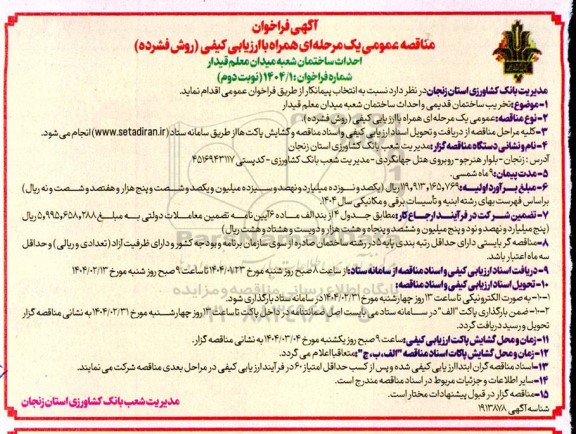 آگهی فراخوان
مناقصه عمومی یک مرحله‌ای همراه با ارزیابی کیفی (روش فشرده)
احداث ساختمان شعبه میدان معلم قیدار
شماره فراخوان: ۱۴۰۴/۱ (نوبت دوم)
مدیریت بانک کشاورزی استان زنجان در نظر دارد نسبت به انتخاب پیمانکار از طریق فراخوان عمومی اقدام نماید.
۱-موضوع: تخریب ساختمان قدیمی و احداث ساختمان شعبه میدان معلم قیدار
۲-نوع مناقصه: عمومی یک مرحله‌ای همراه با ارزیابی کیفی (روش فشرده)
۳-کلیه مراحل مناقصه از دریافت و تحویل اسناد ارزیابی کیفی و اسناد مناقصه و گشایش پاکت هااز طریق سامانه ستاد (www.setadiran.ir) انجام می شود.
۴-نام و نشانی دستگاه مناقصه گزار: مدیریت شعب بانک کشاورزی استان زنجان
آدرس: زنجان - بلوار هنرجو - روبروی هتل جهانگردی - مدیریت شعب بانک کشاورزی - کدپستی ۴۵۱۶۹۴۳۱۱۷
۵-مدت پیمان: ۹ماه شمسی.
۶-مبلغ برآورد اولیه: ۱۱۹,۹۱۳,۱۶۵,۷۶۹ ریال (یکصد و نوزده میلیارد و نهصد و سیزده میلیون و یکصد و شصت و پنج هزار و هفتصد و شصت و نه ریال)
براساس فهرست بهای رشته ابنیه و تأسیسات برقی و مکانیکی سال ۱۴۰۴.
۷-تضمین شرکت در فرآیند ارجاع کار: مطابق جدول ۴ از بند الف ماده ۶ آیین نامه تضمین معاملات دولتی به مبلغ ۵,۹۹۵,۶۵۸,۲۸۸ ریال
(پنج میلیارد و نهصد و نود و پنج میلیون و ششصد و پنجاه و هشت هزار و دویست و هشتاد و هشت ریال)
۸-مناقصه گر بایستی دارای حداقل رتبه بندی پایه ۵ در رشته ساختمان صادره از سوی سازمان برنامه و بودجه کشور و دارای ظرفیت آزاد (تعدادی و ریالی) و حداقل
سه ماه اعتبار باشد.
۹-دریافت اسناد ارزیابی کیفی و اسناد مناقصه از سامانه ستاد: از ساعت ۸ صبح روز شنبه مورخ ۱۴۰۴/۰۱/۲۳ تا ساعت ۹ صبح روز شنبه مورخ ۱۴۰۴/۰۲/۱۳
۱۰-تحویل اسناد ارزیابی کیفی و اسناد مناقصه:
۱-۱۰-به صورت الکترونیکی تا ساعت ۱۳ روز چهارشنبه مورخ ۱۴۰۴/۰۲/۳۱ در سامانه ستاد بارگذاری شود.
۲-۱۰-ضمن بارگذاری پاکت "الف" در سامانه ستاد می بایست اصل ضمانتنامه در داخل پاکت تا ساعت ۱۳ روز چهارشنبه مورخ ۱۴۰۴/۰۲/۳۱ به نشانی مناقصه گزار
تحویل و رسید دریافت گردد.
۱۱-زمان و محل گشایش پاکت ارزیابی کیفی: ساعت ۹ صبح روز یکشنبه مورخ ۱۴۰۴/۰۳/۰۴ به نشانی مناقصه گزار.
۱۲-زمان و محل گشایش پاکات اسناد مناقصه "الف، ب، ج": متعاقبا اعلام می گردد.
۱۳-اسناد مناقصه گران ابتدا ارزیابی کیفی شده و پس از کسب حداقل امتیاز ۶۰ در فرآیند ارزیابی کیفی در مراحل بعدی مناقصه شرکت می نمایند.
۱۴-سایر اطلاعات و جزئیات مربوط در اسناد مناقصه مندرج است.
۱۵-مناقصه گزار در قبول پیشنهادات مختار است.
شناسه آگهی ۱۹۱۳۸۷۸
مدیریت شعب بانک کشاورزی استان زنجان